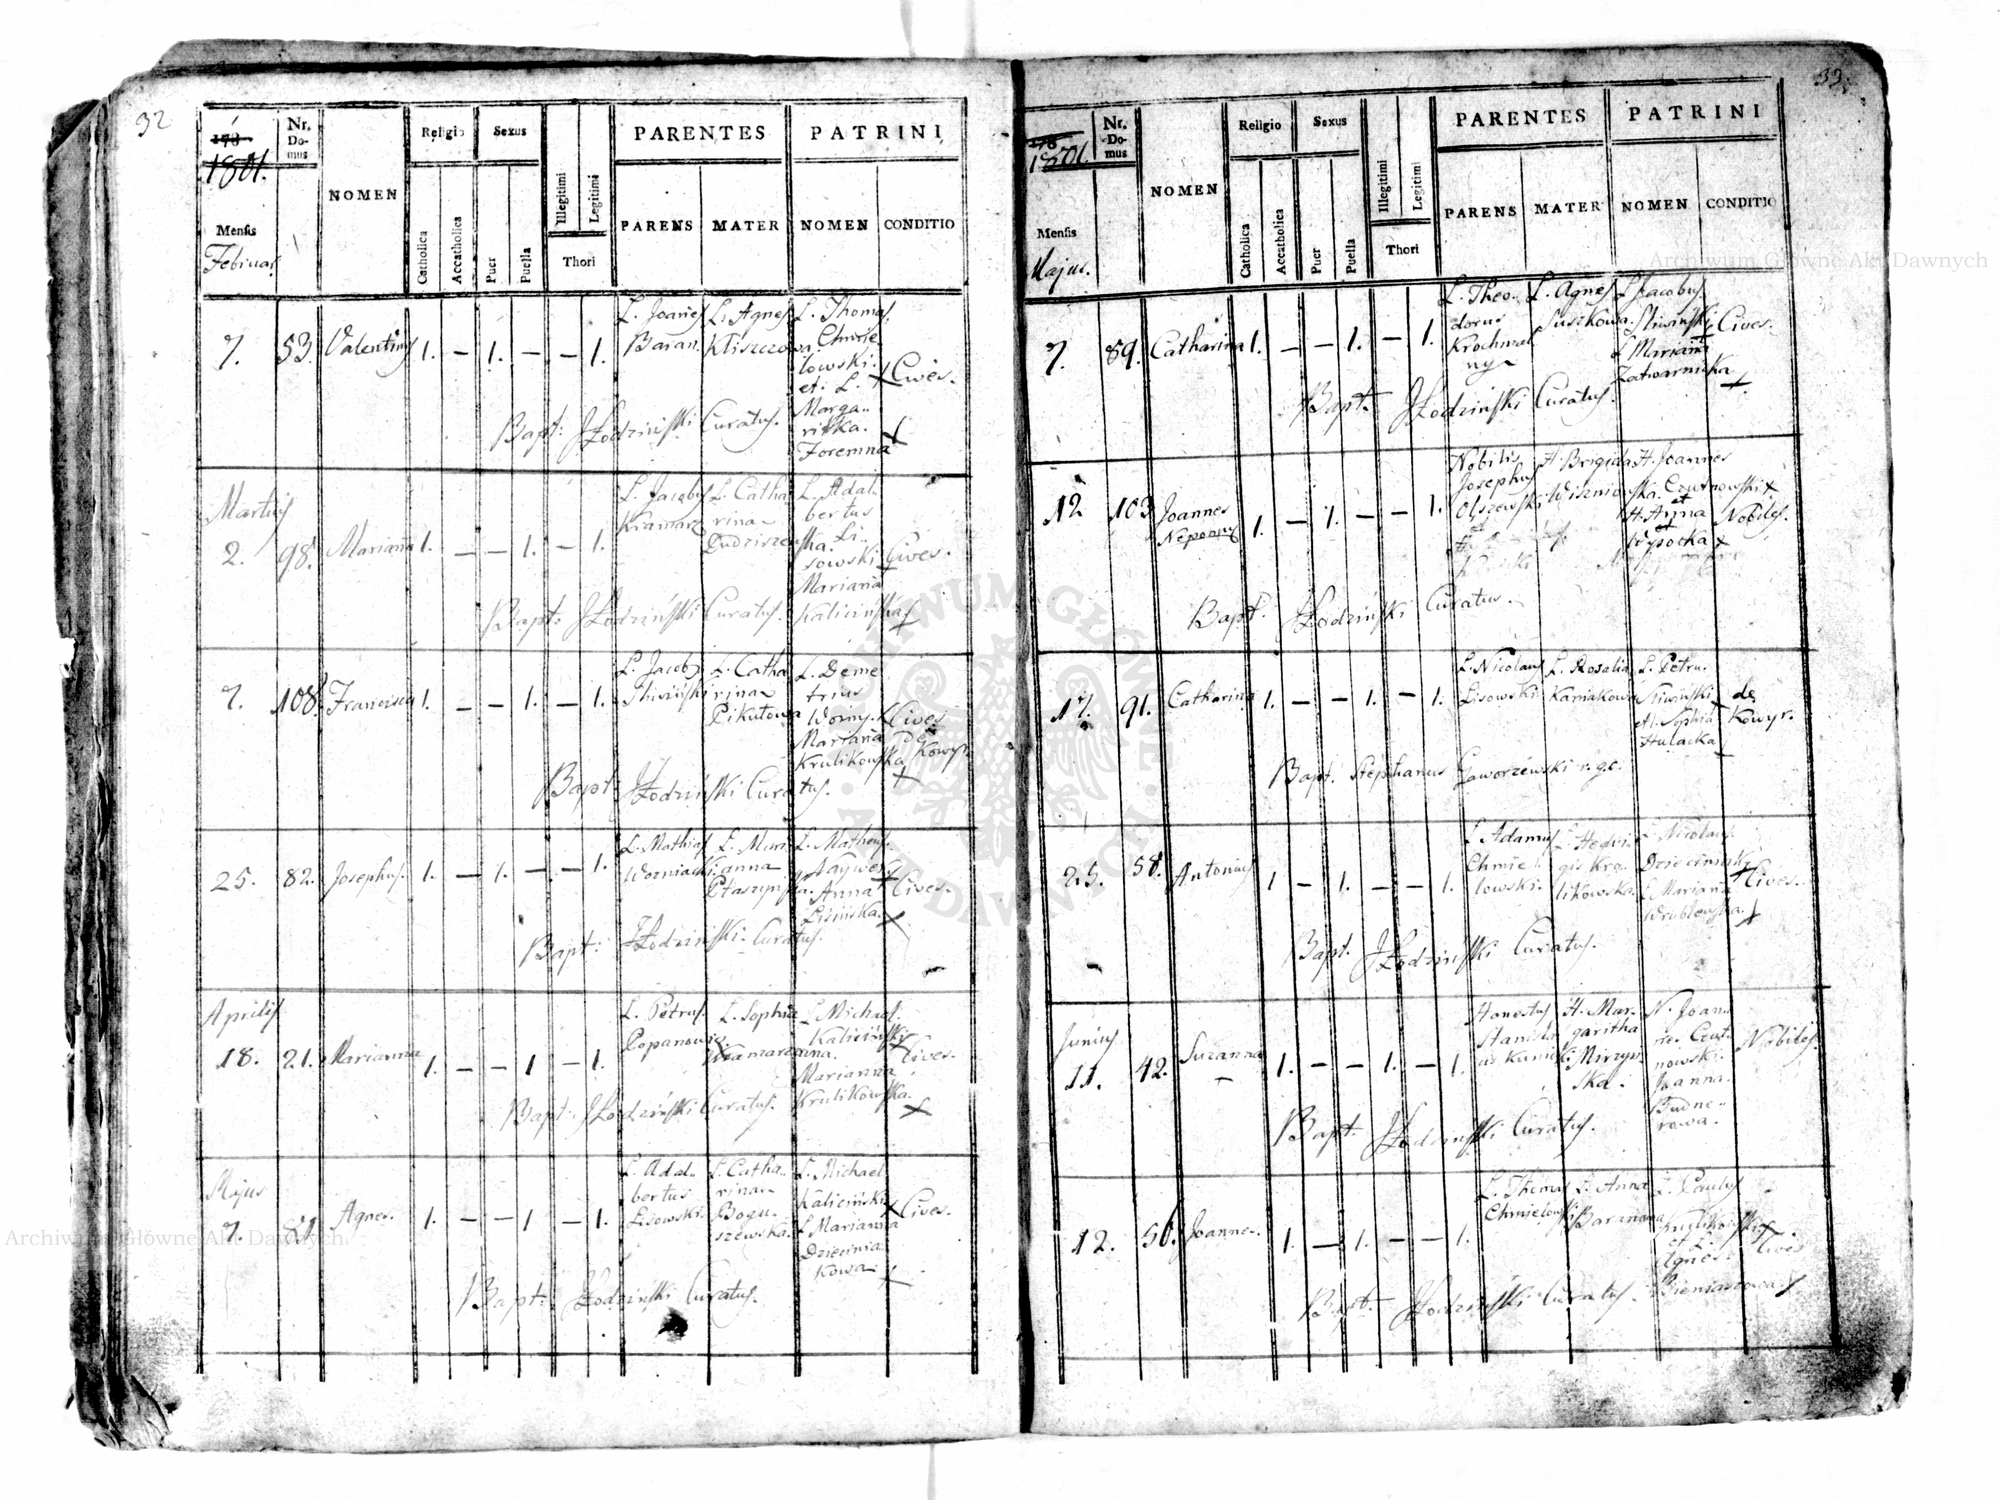 32
178
1801.
Nr. Domus
NOMEN
Religio
Sexus
PARENTES
PATRINI
Mensis
Februar.
Catholica
Accatholica
Puer
Puella
Illegitimi
Legitimi
Thori
PARENS
MATER
NOMEN
CONDITIO
7. 53. Valentinus 1. — 1. — — 1.
L. Joannes Baran.
L. Agnes Kliszczowa.
L. Thomas Chmielowski. et. L. Margaritka. Foremna
Cives.
Bapt: JŁodziński Curatus.
Martius
2. 98. Marianna 1. — — 1. — 1.
L. Jacobus Kramarz
L. Catharina
L. Adalbertus Lisowski.
Marianna Kalicińska
Cives.
Bapt: JŁodziński Curatus.
7. 108. Francisca 1. — — 1. — 1.
L. Jacob. Sliwiński
L. Catharina Pikutowa
L. Demetrius Woiny.
Marianna Krulikowska
Cives de Kowyr.
Bapt: JŁodziński Curatus.
25. 82. Josephus. 1. — 1. — — 1.
L. Mathias Wozniacki
L. Marianna Ptaszyńska.
L. Matheus. Anna Lisińska.
Cives.
Bapt: JŁodziński. Curatus.
Aprilis
18. 21. Marianna 1. — — 1 — 1.
L. Petrus. Popanowicz
L. Sophia Kramarzanna.
L. Michael. Kaliciński
Marianna Krulikowska.
Cives.
Bapt: JŁodziński Curatus.
Majus
7. 81. Agnes. 1. — — 1 — 1.
L. Adalbertus Lisowski.
L. Catharina Boguszewska.
L. Michael Kaliciński
L. Marianna Dzieciniakowa
Cives.
Bapt: JŁodziński Curatus.
33.
178
1801.
Nr. Domus
NOMEN
Religio
Sexus
PARENTES
PATRINI
Mensis
Majus.
Catholica
Accatholica
Puer
Puella
Illegitimi
Legitimi
Thori
PARENS
MATER
NOMEN
CONDITIO
7. 89. Catharina 1. — — 1. — 1.
L. Theodorus Krochmalny
L. Agnes Suszkowa.
L. Jacobus. Sliwiński
L. Marianna Zatwarnicka
Cives.
Bapt. JŁodziński Curatus.
12. 103 Joannes Nepomus 1. — 1. — — 1.
Nobilis Josephus Olszewski
H. Brigida Wiszniowska.
H. Joannes Czutnowski et H. Anna Wysocka
Nobiles.
Bapt. JŁodziński Curatus.
17. 91. Catharina 1. — — 1. — 1.
L. Nicolaus Lisowski.
L. Rosalia Kaniakowa
L. Petrus. Sliwiński et L. Sophia Hulacka
de Kowyr.
Bapt. Stephanus Gaworzewski r. g. c.
25. 58. Antonius 1 — 1. — — 1.
L. Adamus Chmielowski.
L. Hedwigis Krolikowska.
L. Nicolaus Dzieciniak
L. Marianna Wrublowska.
Cives.
Bapt. JŁodziński Curatus.
Junius
11. 42. Suzanna 1. — — 1. — 1.
Honestus Stanislaus Kunicki.
H. Margaritha Mirzyńska.
N. Joannes. Czutnowski. Joanna. Budnerowa.
Nobiles.
Bapt. JŁodziński Curatus.
12. 56. Joannes. 1. — 1. — — 1.
L. Thomas Chmielowski
L. Anna Baranowa
L. Paulus Krulikowski et L. Agnes. Bieniaszowa.
Cives
Bapt. JŁodziński Curatus.
Archiwum Główne Akt Dawnych
Archiwum Główne Akt Dawnych
ARCHIWUM GŁÓWNE AKT DAWNYCH